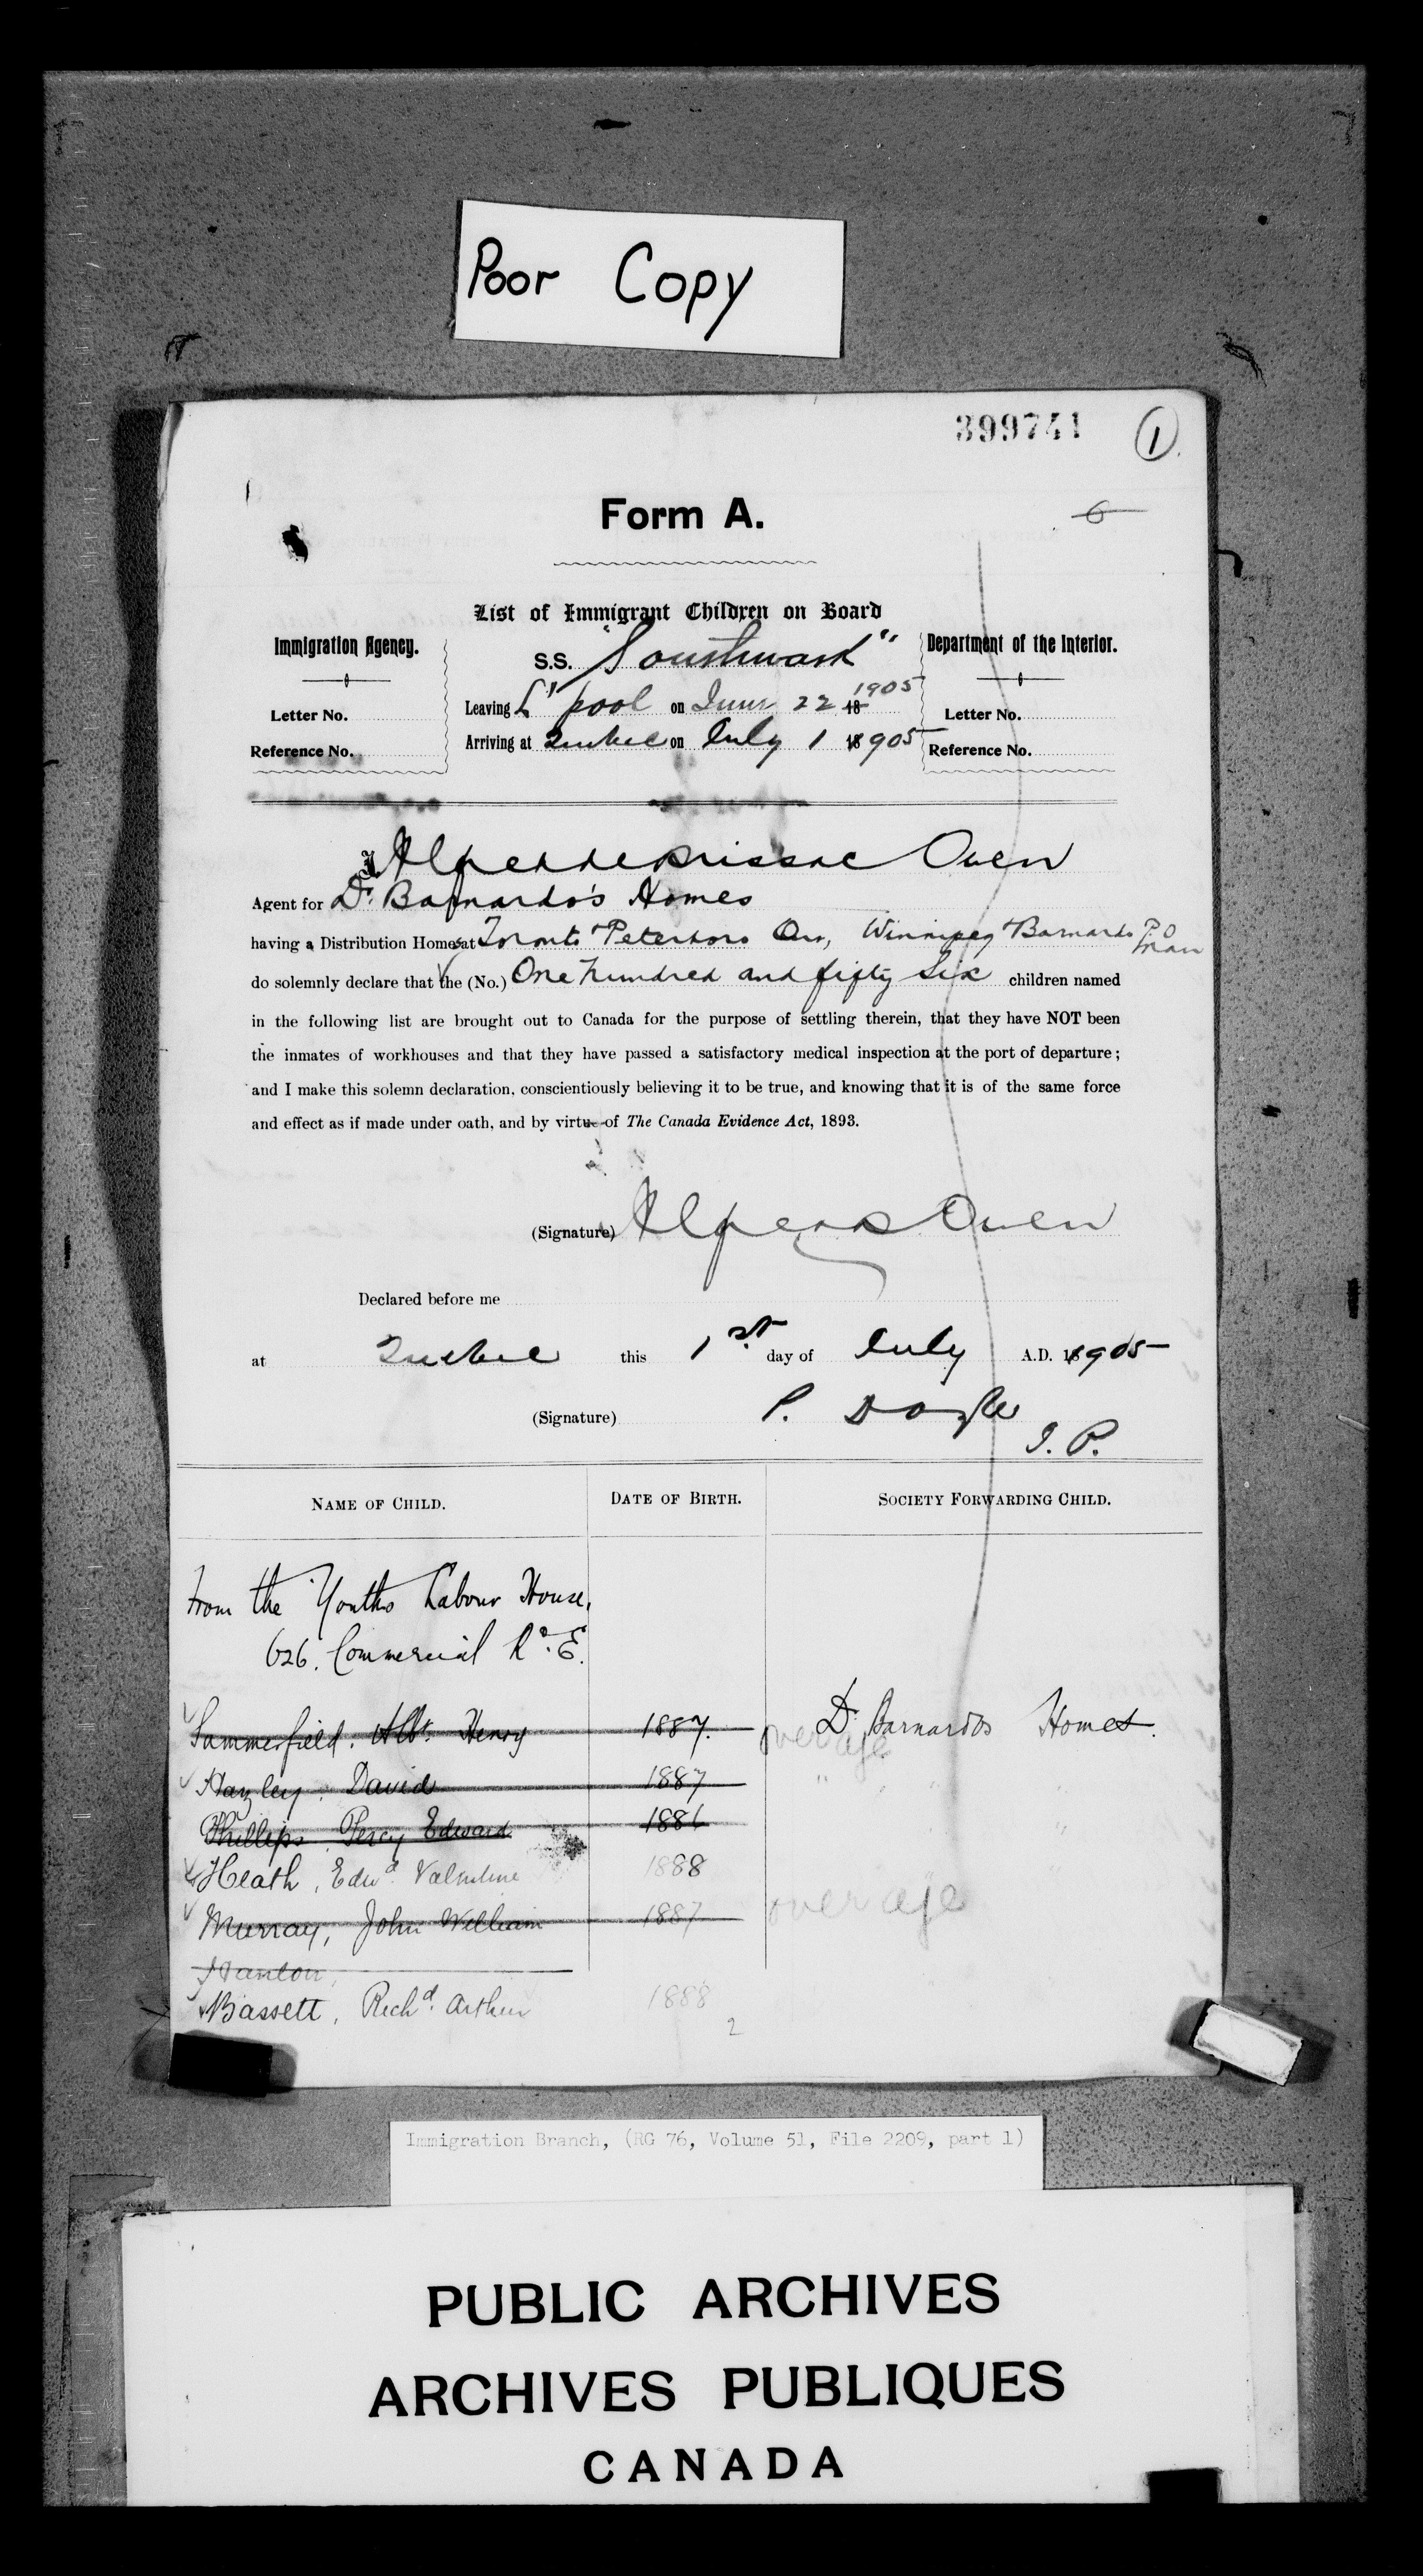 Poor Copy
399741 1
Form A.
6
List of Immigrant Children on Board
Immigration Agency.
S.S. "Southwark"
Department of the Interior.
Letter No.
Leaving L'pool on June 22 18 1905
Letter No.
Reference No.
Arriving at Quebec on July 1 18 905
Reference No.
I, Alfred de Brissac Owen
Agent for Dr. Barnardo's Homes
having a Distribution Homes at Toronto Peterboro Ont, Winnipeg & Barnardo P.O. Man
do solemnly declare that the (No.) One hundred and fifty Six children named
in the following list are brought out to Canada for the purpose of settling therein, that they have NOT been
the inmates of workhouses and that they have passed a satisfactory medical inspection at the port of departure;
and I make this solemn declaration, conscientiously believing it to be true, and knowing that it is of the same force
and effect as if made under oath, and by virtue of The Canada Evidence Act, 1893.
(Signature) Alfred B Owen
Declared before me
at Quebec this 1st day of July A.D. 1905
(Signature) P. Doyle
J. P.
NAME OF CHILD. DATE OF BIRTH. SOCIETY FORWARDING CHILD.
From the Youths Labour House,
626. Commercial Rd. E.
Summerfield. Albt. Henry 1887. Dr. Barnardos Homes.
overage
Hazley. David 1887 " " "
Phillips. Percy Edward 1886 "
Heath, Edwd. Valentine 1888
Murray, John William 1887 overage
Hanlon,
Bassett, Richd. Arthur 1888
2
Immigration Branch, (RG 76, Volume 51, File 2209, part 1)
PUBLIC ARCHIVES
ARCHIVES PUBLIQUES
CANADA